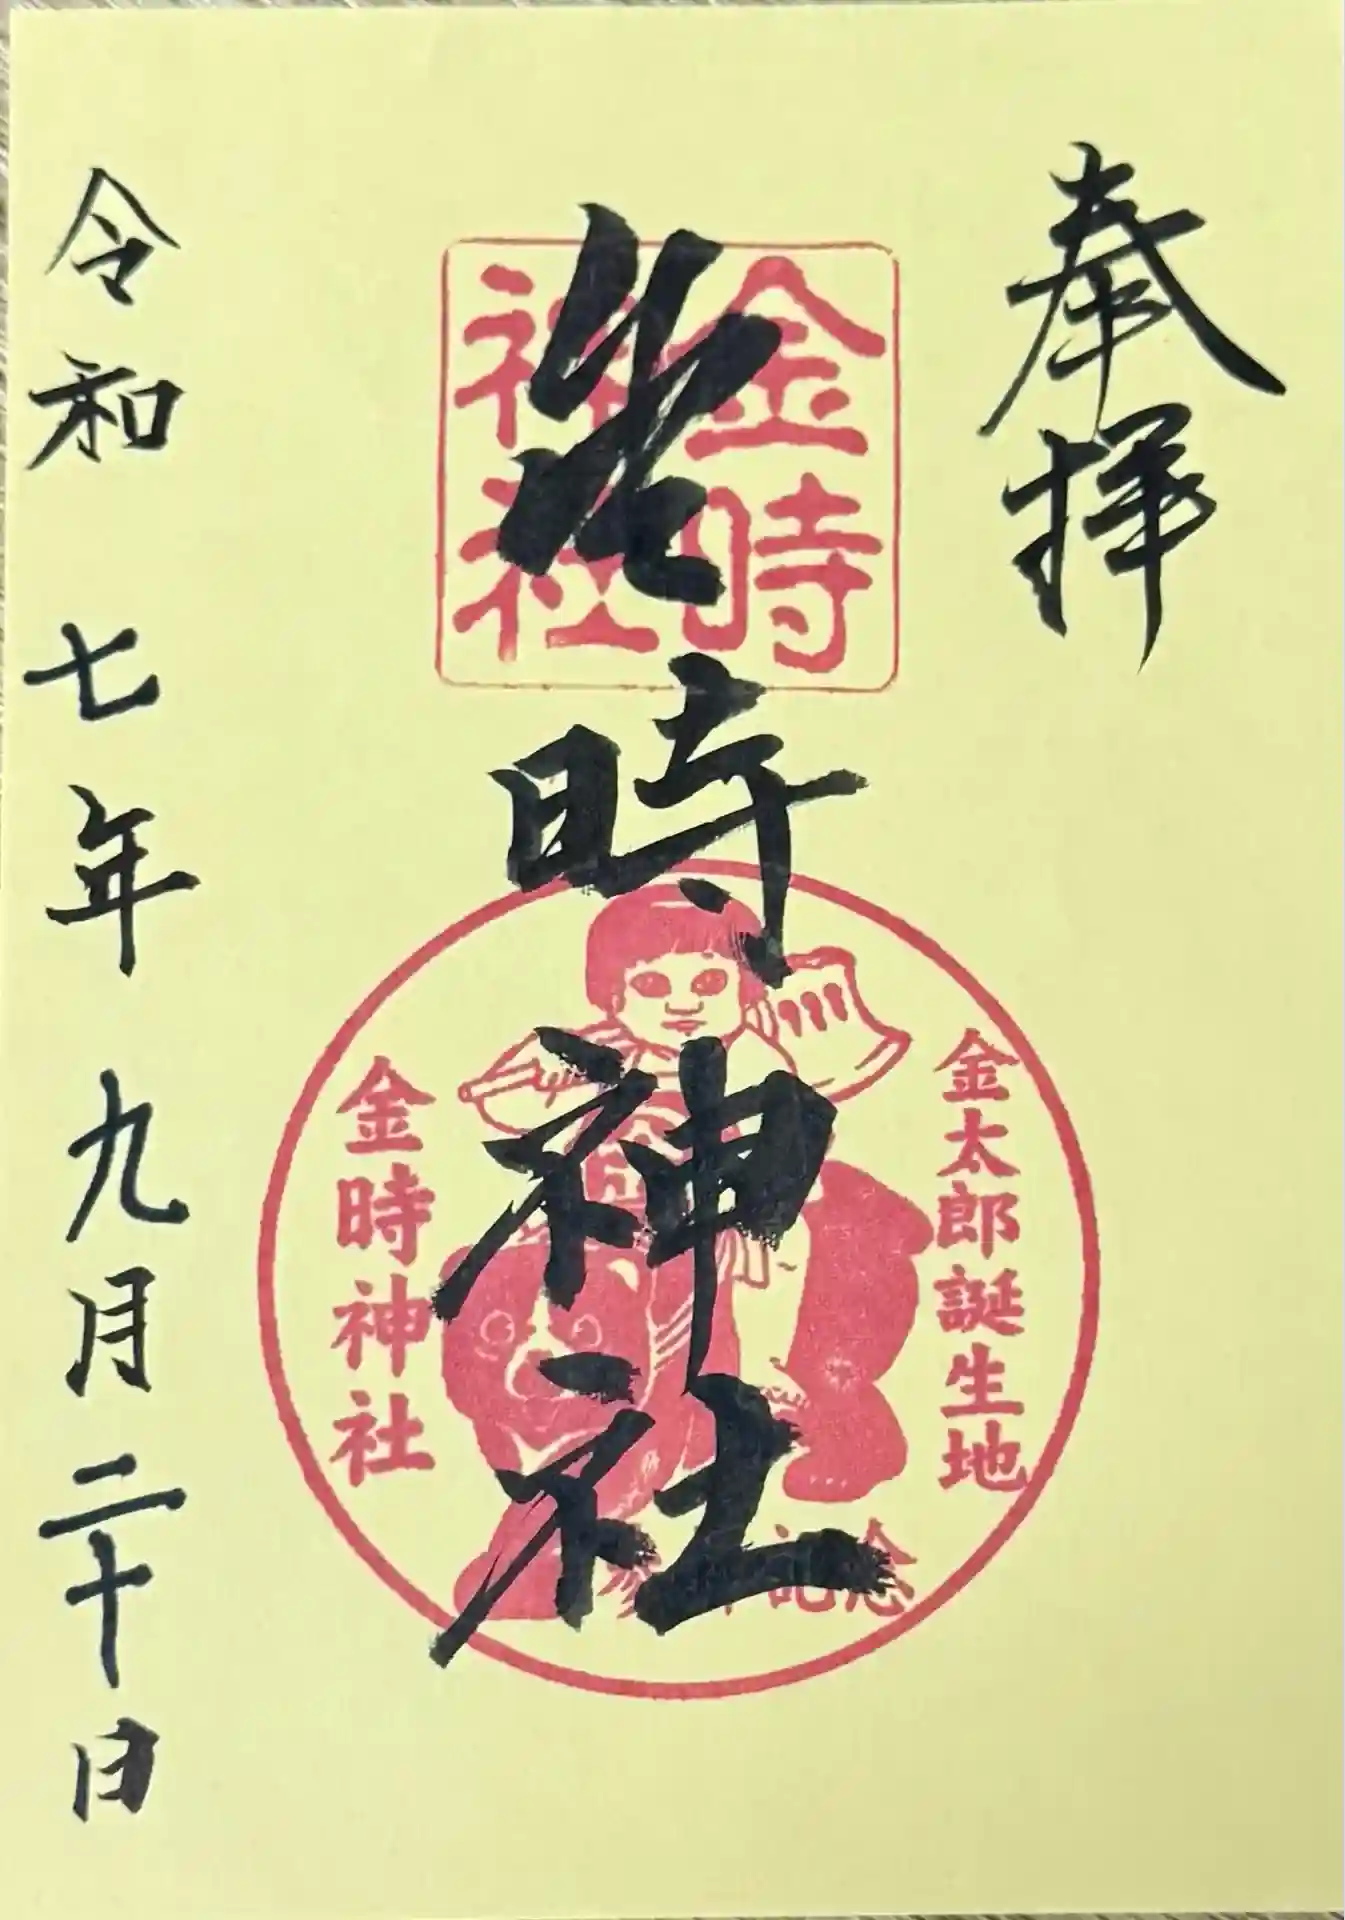 奉拝
金時神社
金時
神社
金太郎誕生地
金時神社
参拝記念
令和七年九月二十日